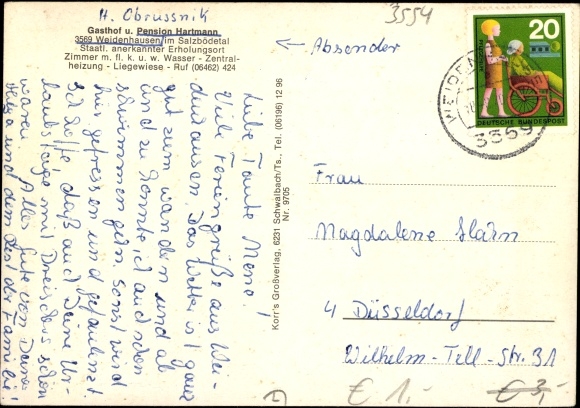 H. Obrussnik
Gasthof u. Pension Hartmann
3569 Weidenhausen/im Salzbödetal
Staatl. anerkannter Erholungsort
Zimmer m. fl. k. u. w. Wasser - Zentral-
heizung - Liegewiese - Ruf (06462) 424
← Absender
3554
20
DEUTSCHE BUNDESPOST
3569
Liebe Tante Mene!
Viele Feriengrüße aus Wei-
denhausen. Das Wetter ist ganz
gut zum wandern und ab
und zu konnte ich auch schon
schwimmen gehn. Sonst wird
hier gefressen und gefaulenzt
Ich hoffe, daß auch Deine Ur-
laubstage mit schön
waren. Alles Gute von Deiner
und dem Rest der Familie!
Korr's Großverlag, 6231 Schwalbach/Ts., Tel. (06196) 12 96
Nr. 9705
Frau
Magdalene
4 Düsseldorf
Wilhelm-Tell-Str. 31
€ 1,-
€ 3,-